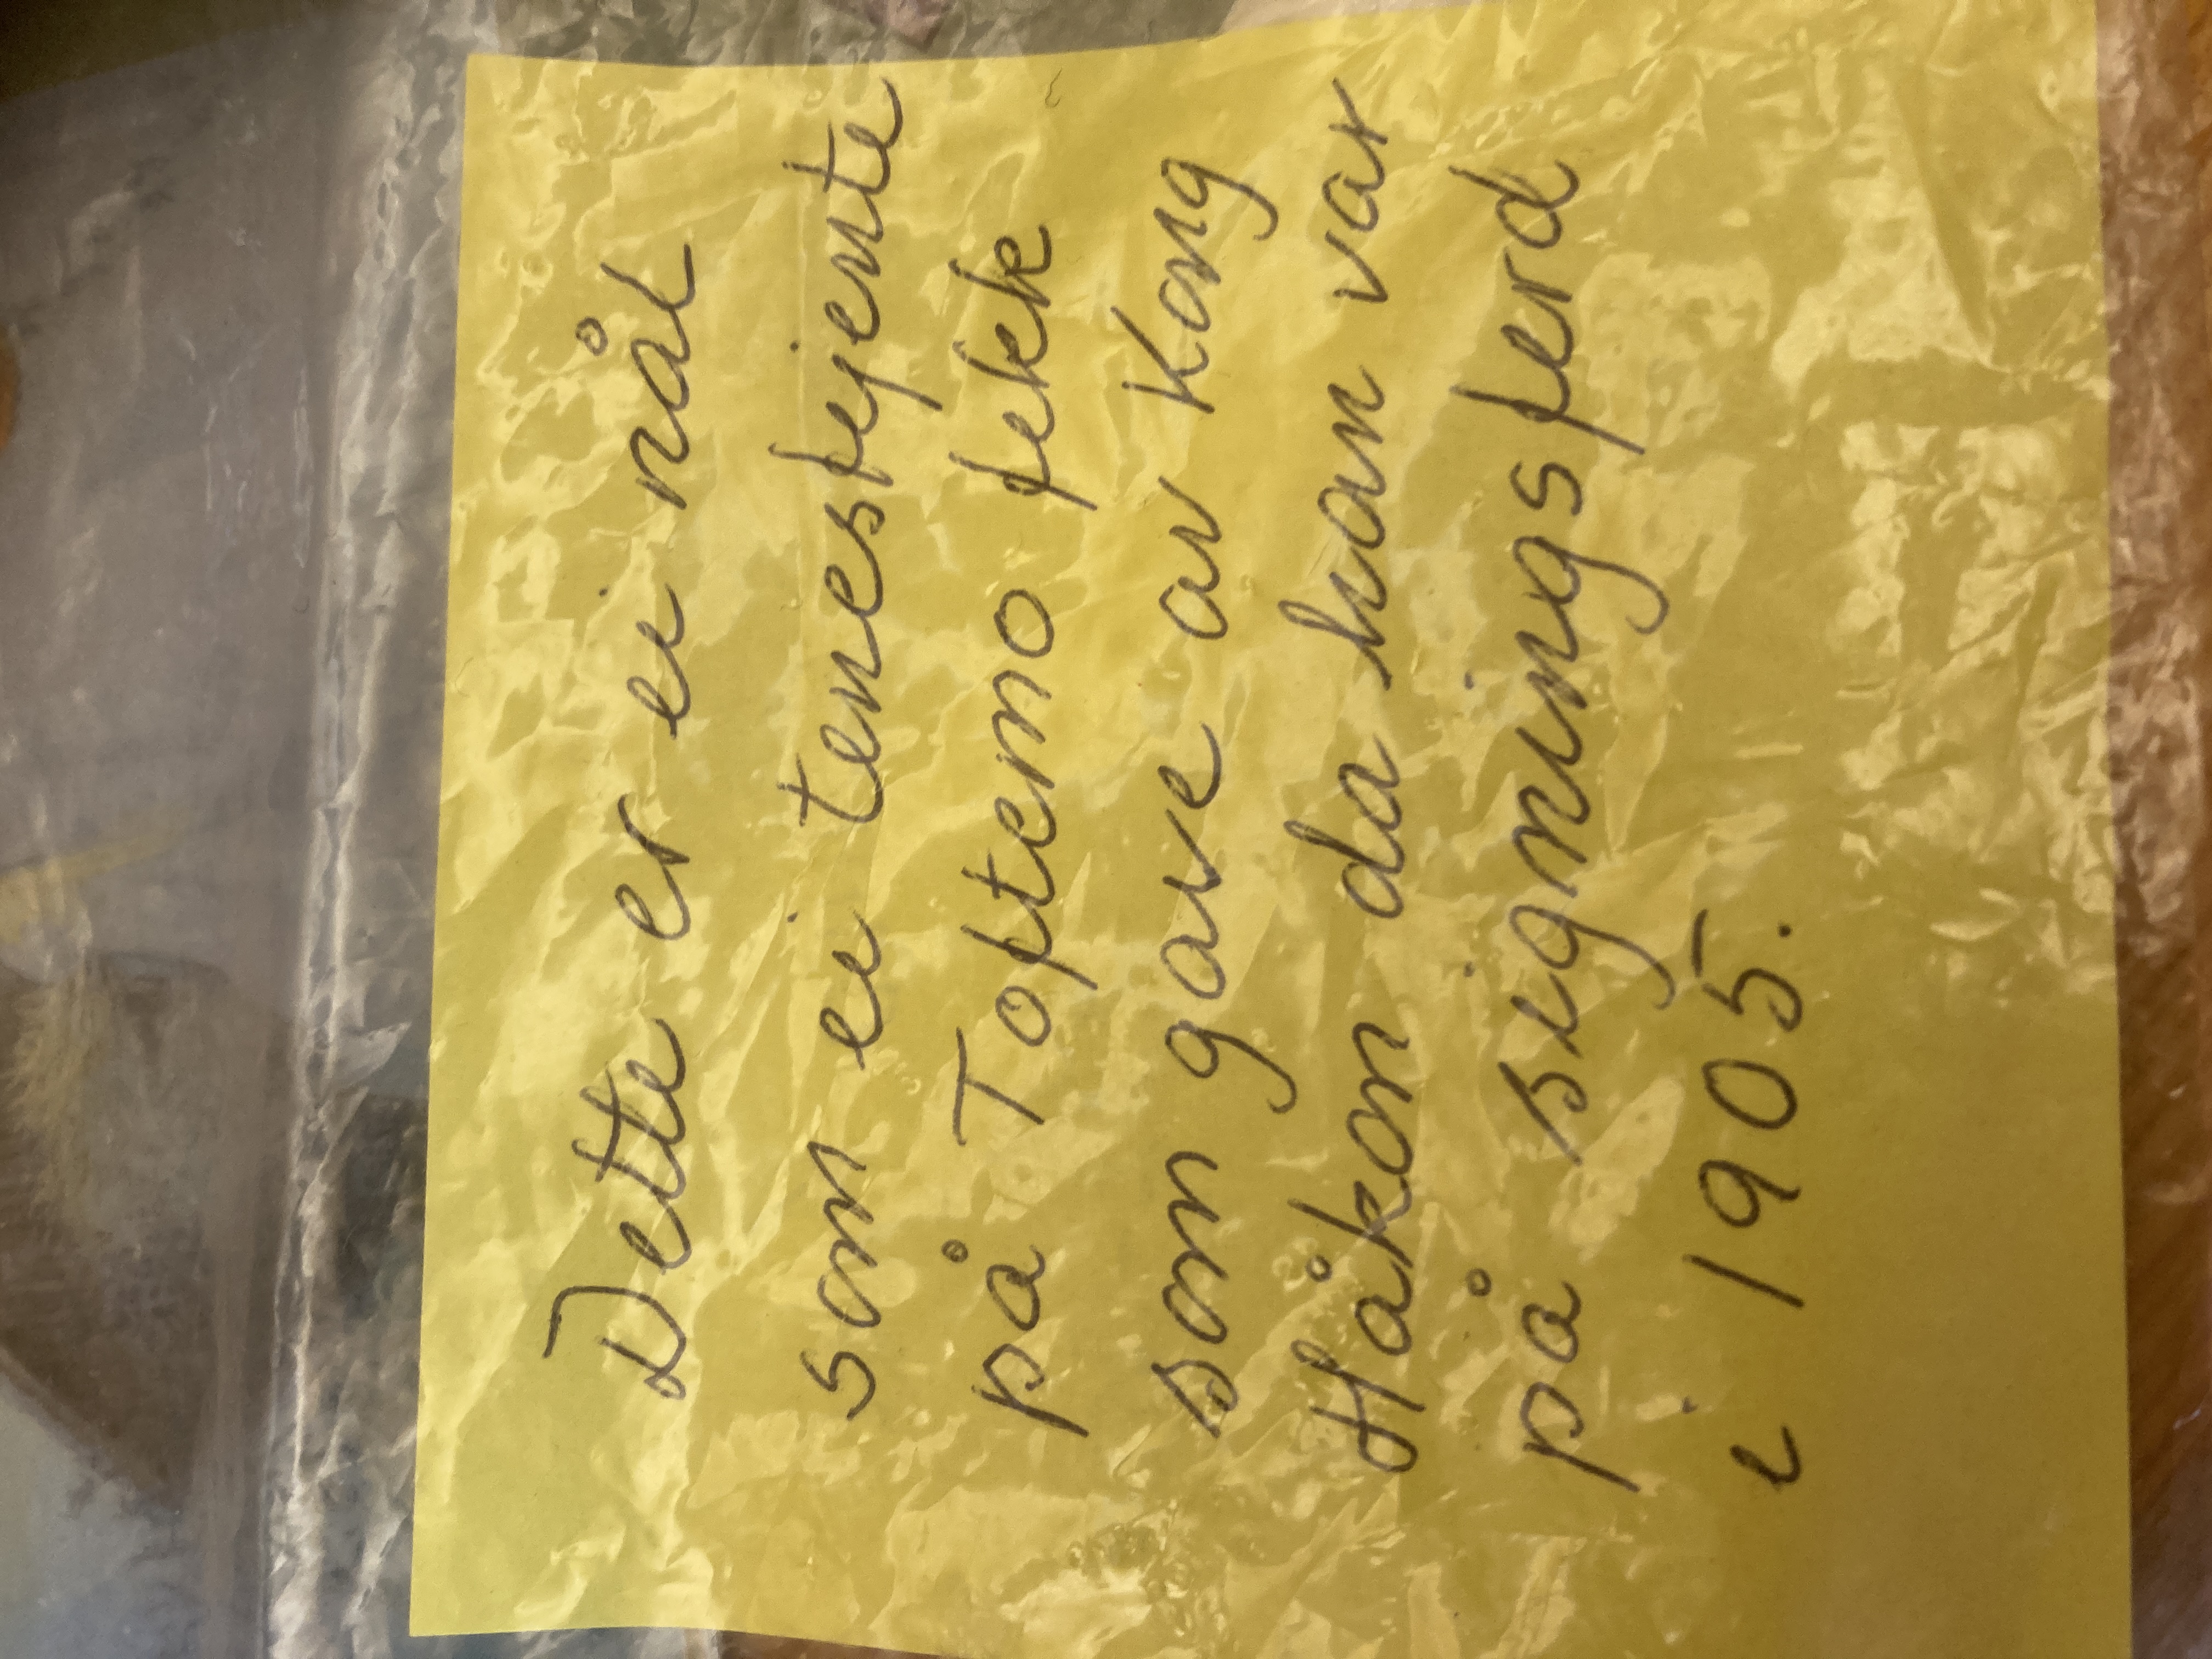 Dette er ei nål
som ei tenestejente
på Toftemo fekk
som gave av Kong
Håkon da han var
på signingsferd
i 1905.